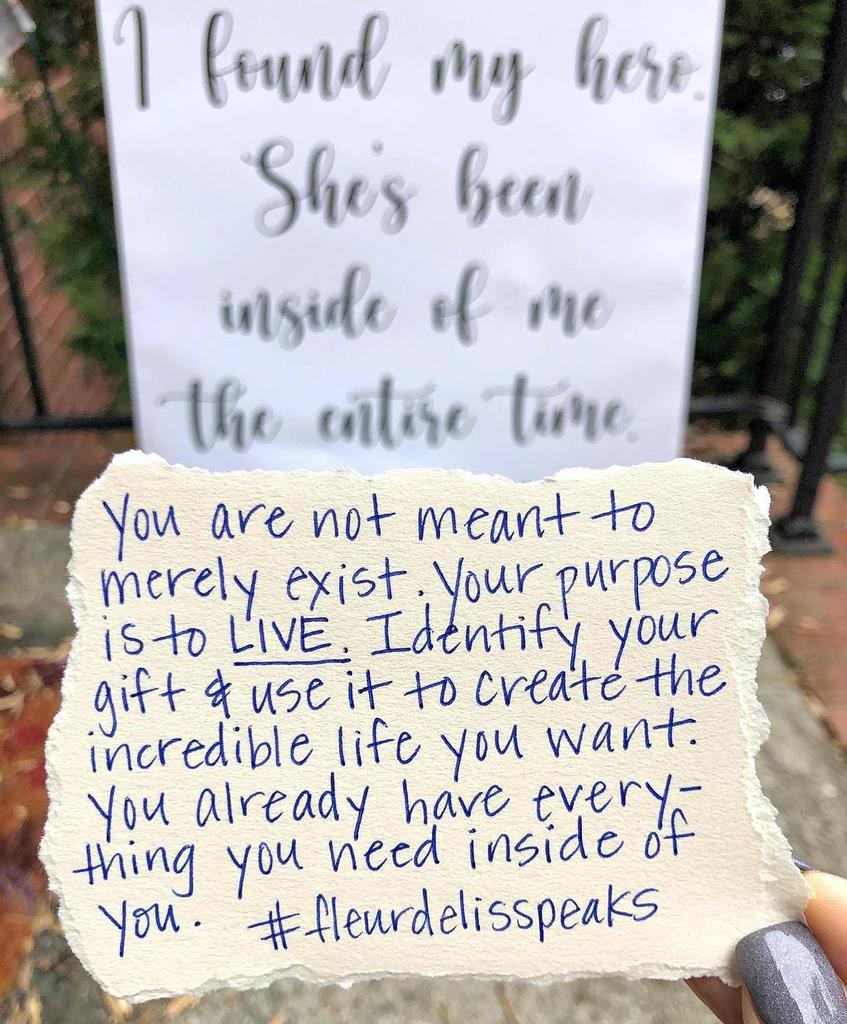 I found my hero.
She's been
inside of me
the entire time.
You are not meant to
merely exist. Your purpose
is to LIVE. Identify your
gift & use it to create the
incredible life you want.
You already have every-
thing you need inside of
you. #fleurdelisspeaks